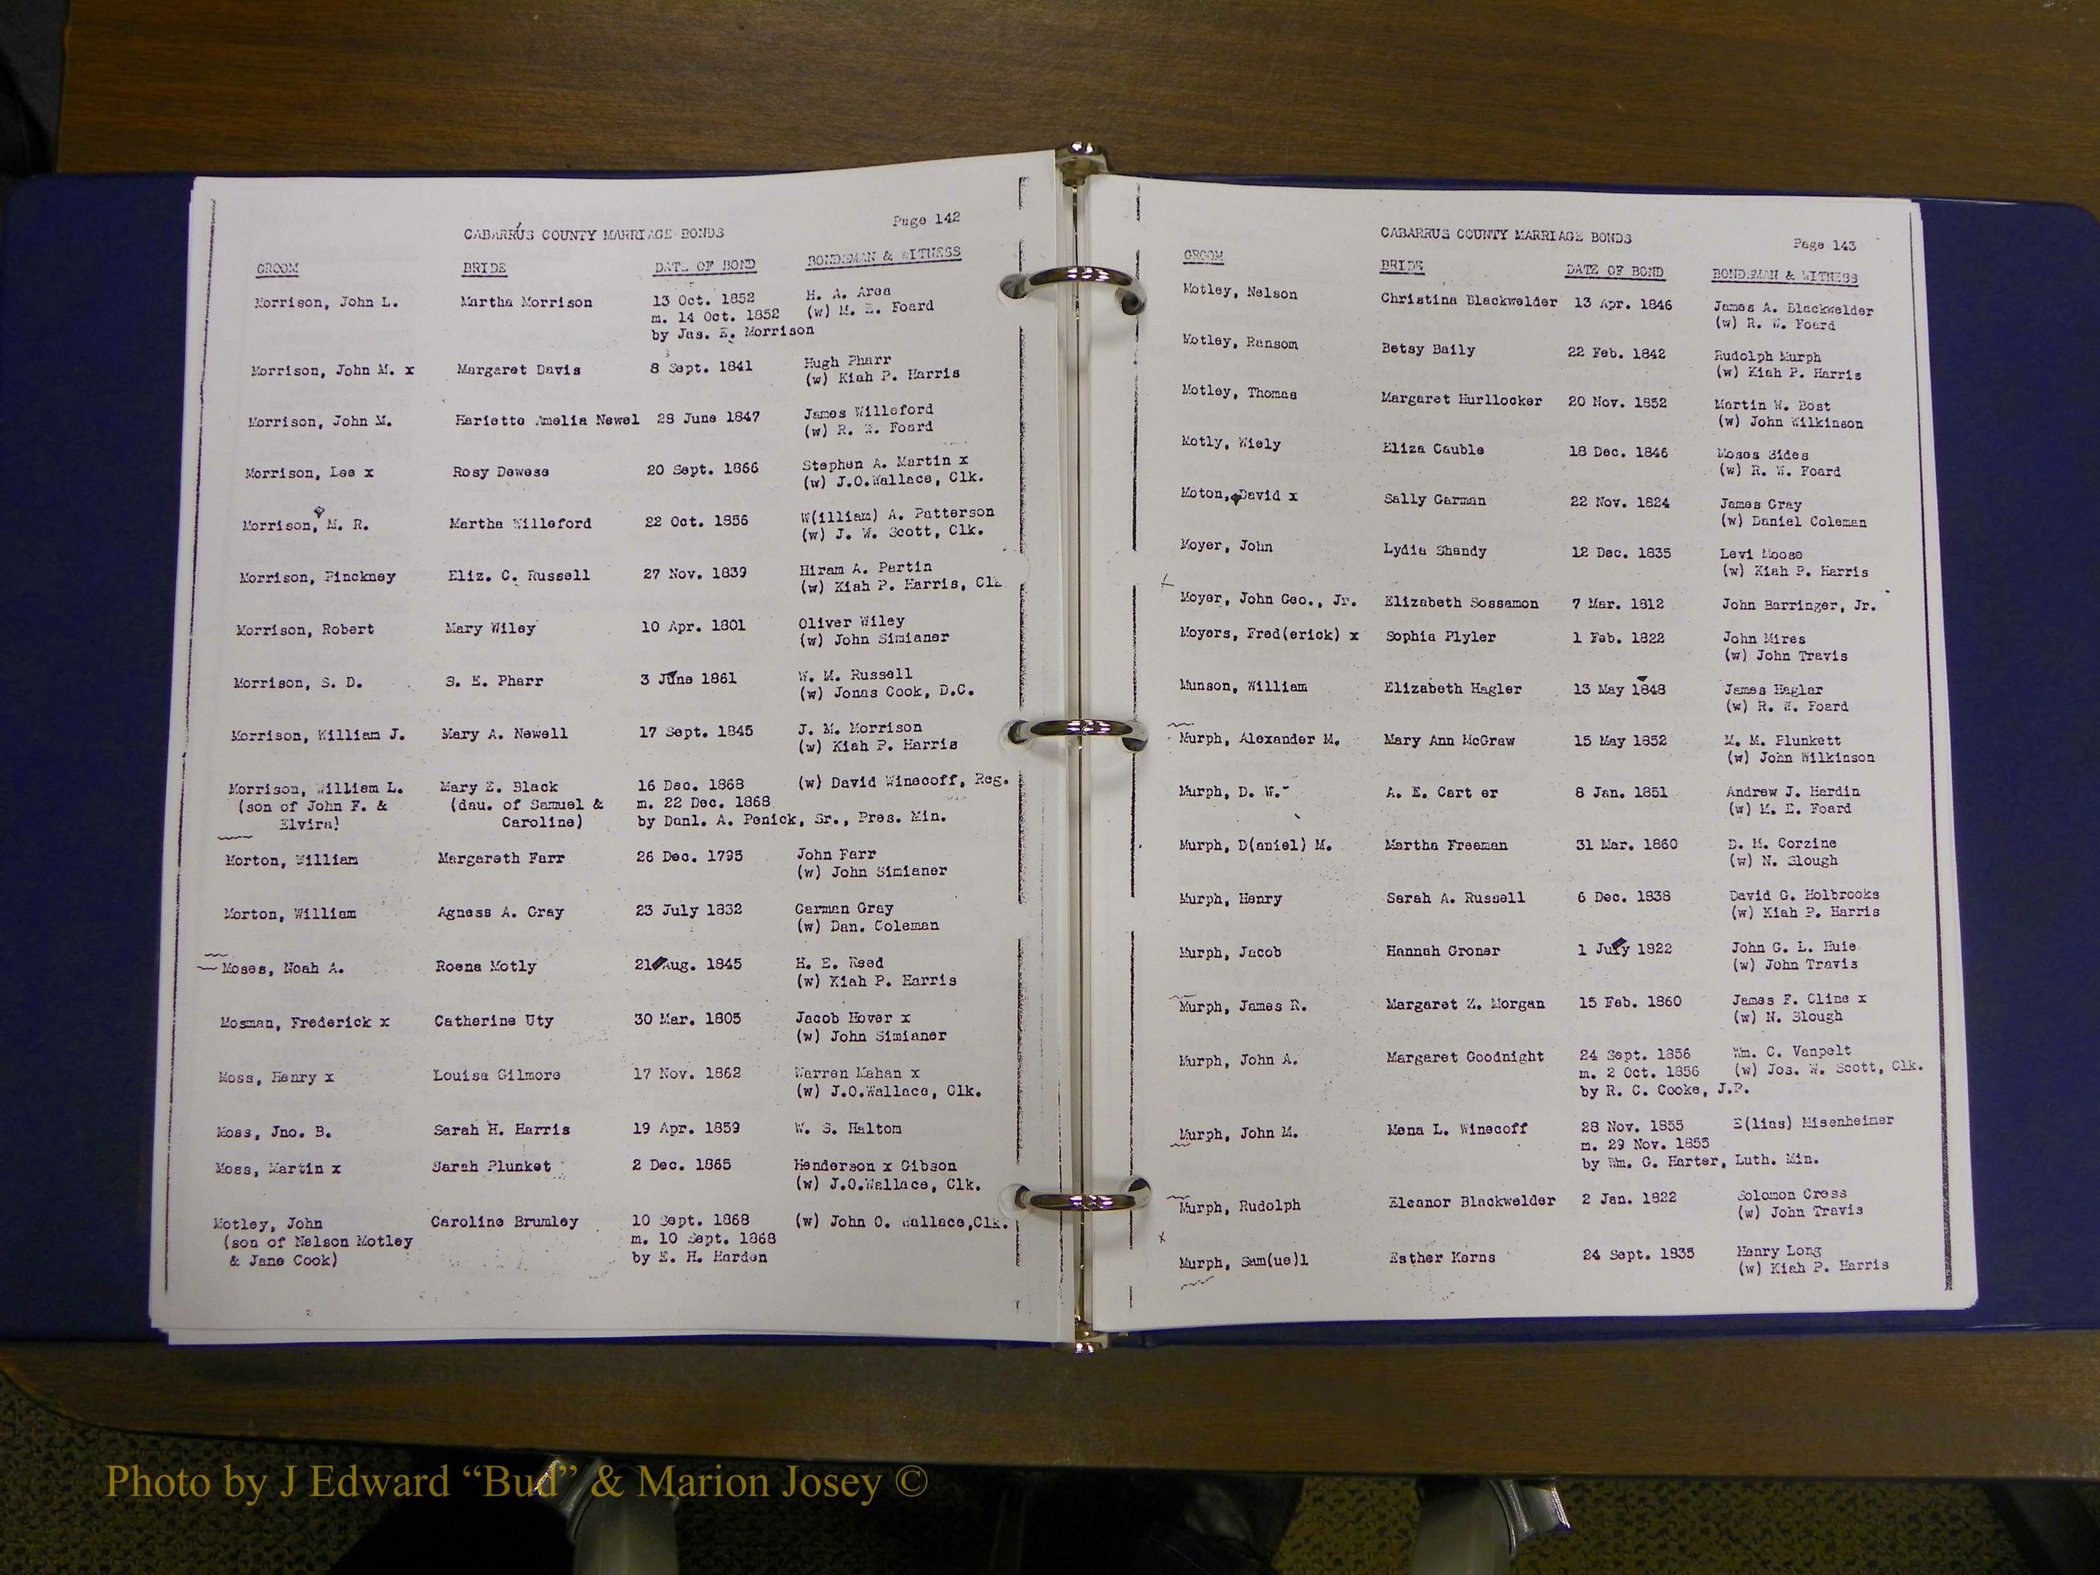 Page 142
CABARRUS COUNTY MARRIAGE BONDS
GROOM BRIDE DATE OF BOND BONDSMAN & WITNESS
Morrison, John L. Martha Morrison 13 Oct. 1852 H. A. Area
m. 14 Oct. 1852 (w) M. E. Foard
by Jas. E. Morrison
Morrison, John M. x Margaret Davis 8 Sept. 1841 Hugh Pharr
(w) Kiah P. Harris
Morrison, John M. Hariette Amelia Newel 28 June 1847 James Willeford
(w) R. W. Foard
Morrison, Lee x Rosy Dewese 20 Sept. 1866 Stephen A. Martin x
(w) J.O.Wallace, Clk.
Morrison, M. R. Martha Willeford 22 Oct. 1856 W(illiam) A. Patterson
(w) J. W. Scott, Clk.
Morrison, Pinckney Eliz. C. Russell 27 Nov. 1839 Hiram A. Partin
(w) Kiah P. Harris, Clk
Morrison, Robert Mary Wiley 10 Apr. 1801 Oliver Wiley
(w) John Simianer
Morrison, S. D. S. E. Pharr 3 June 1861 W. M. Russell
(w) Jonas Cook, D.C.
Morrison, William J. Mary A. Newell 17 Sept. 1845 J. M. Morrison
(w) Kiah P. Harris
Morrison, William L. Mary E. Black 16 Dec. 1868 (w) David Winecoff, Reg.
(son of John F. & (dau. of Samuel & m. 22 Dec. 1868
Elvira) Caroline) by Danl. A. Penick, Sr., Pres. Min.
Morton, William Margareth Farr 26 Dec. 1795 John Farr
(w) John Simianer
Morton, William Agness A. Gray 23 July 1832 German Gray
(w) Dan. Coleman
Moses, Noah A. Roena Motly 21 Aug. 1845 H. E. Reed
(w) Kiah P. Harris
Mosman, Frederick x Catherine Uty 30 Mar. 1805 Jacob Hover x
(w) John Simianer
Moss, Henry x Louisa Gilmore 17 Nov. 1862 Warren Mahan x
(w) J.O.Wallace, Clk.
Moss, Jno. B. Sarah H. Harris 19 Apr. 1859 W. S. Haltom
Moss, Martin x Sarah Plunket 2 Dec. 1865 Henderson x Gibson
(w) J.O.Wallace, Clk.
Motley, John Caroline Brumley 10 Sept. 1868 (w) John O. Wallace,Clk.
(son of Nelson Motley m. 10 Sept. 1868
& Jane Cook) by E. H. Harden
CABARRUS COUNTY MARRIAGE BONDS Page 143
GROOM BRIDE DATE OF BOND BONDSMAN & WITNESS
Motley, Nelson Christina Blackwelder 13 Apr. 1846 James A. Blackwelder
(w) R. W. Foard
Motley, Ransom Betsy Baily 22 Feb. 1842 Rudolph Murph
(w) Kiah P. Harris
Motley, Thomas Margaret Hurllocker 20 Nov. 1852 Martin W. Bost
(w) John Wilkinson
Motly, Wiely Eliza Cauble 18 Dec. 1846 Moses Sides
(w) R. W. Foard
Moton, David x Sally Garman 22 Nov. 1824 James Gray
(w) Daniel Coleman
Moyer, John Lydia Shandy 12 Dec. 1835 Levi Moose
(w) Kiah P. Harris
Moyer, John Geo., Jr. Elizabeth Sossamon 7 Mar. 1812 John Barringer, Jr.
Moyers, Fred(erick) x Sophia Plyler 1 Feb. 1822 John Mires
(w) John Travis
Munson, William Elizabeth Hagler 13 May 1848 James Haglar
(w) R. W. Foard
Murph, Alexander M. Mary Ann McGraw 15 May 1852 M. M. Plunkett
(w) John Wilkinson
Murph, D. W. A. E. Cart er 8 Jan. 1851 Andrew J. Hardin
(w) M. E. Foard
Murph, D(aniel) M. Martha Freeman 31 Mar. 1860 D. M. Corzine
(w) N. Slough
Murph, Henry Sarah A. Russell 6 Dec. 1838 David G. Holbrooks
(w) Kiah P. Harris
Murph, Jacob Hannah Groner 1 July 1822 John G. L. Huie
(w) John Travis
Murph, James R. Margaret Z. Morgan 15 Feb. 1860 James F. Cline x
(w) N. Slough
Murph, John A. Margaret Goodnight 24 Sept. 1856 Wm. C. Vanpelt
m. 2 Oct. 1856 (w) Jos. W. Scott, Clk.
by R. C. Cooke, J.P.
Murph, John M. Mena L. Winecoff 28 Nov. 1855 E(lias) Misenheimer
m. 29 Nov. 1855
by Wm. G. Harter, Luth. Min.
Murph, Rudolph Eleanor Blackwelder 2 Jan. 1822 Solomon Cress
(w) John Travis
Murph, Sam(ue)l Esther Kerns 24 Sept. 1835 Henry Long
(w) Kiah P. Harris
Photo by J Edward “Bud” & Marion Josey ©